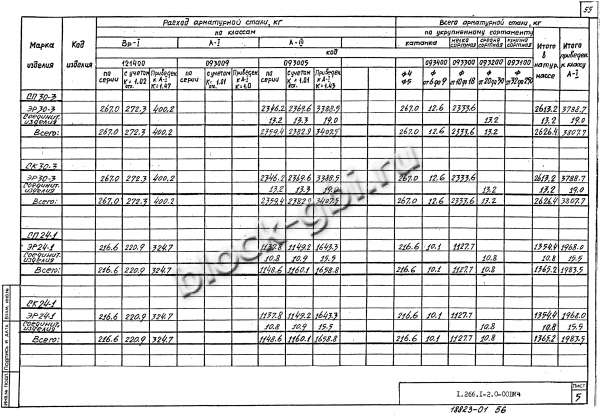 55
Расход арматурной стали, кг
Всего арматурной стали, кг
по классам
по укрупненному сортаменту
Марка изделия
Код изделия
Вр-I
А-I
А-III
катанка
мелко сортная
средне сортная
крупно сортная
Итого в натур. массе
Итого приведен. к классу А-I
код
121400
093009
093005
093400
093300
093200
093100
по серии
с учетом К=1.02
Приведен. к А-I К=1.47
по серии
с учетом К=1.01
Приведен. к А-I К=1.0
по серии
с учетом К=1.01
Приведен. к А-I К=1.43
ф4 ф5
от 6 до 9
от 10 до 18
от 20 до 30
от 32 до 250
СП 30-3
ЭР30-3 267.0 272.3 400.2 2346.2 2369.6 3388.5 267.0 12.6 2333.6 2613.2 3788.7
Соединит. изделия 13.2 13.3 19.0 13.2 13.2 19.0
Всего: 267.0 272.3 400.2 2359.4 2382.9 3407.5 267.0 12.6 2333.6 13.2 2626.4 3807.7
СК 30-3
ЭР30-3 267.0 272.3 400.2 2346.2 2369.6 3388.5 267.0 12.6 2333.6 2613.2 3788.7
Соединит. изделия 13.2 13.3 19.0 13.2 13.2 19.0
Всего: 267.0 272.3 400.2 2359.4 2382.9 3407.5 267.0 12.6 2333.6 13.2 2626.4 3807.7
СП 24-1
ЭР24-1 216.6 220.9 324.7 1137.8 1149.2 1643.3 216.6 10.1 1127.7 1354.4 1968.0
Соединит. изделия 10.8 10.9 15.5 10.8 10.8 15.5
Всего: 216.6 220.9 324.7 1148.6 1160.1 1658.8 216.6 10.1 1127.7 10.8 1365.2 1983.5
СК 24-1
ЭР24-1 216.6 220.9 324.7 1137.8 1149.2 1643.3 216.6 10.1 1127.7 1354.4 1968.0
Соединит. изделия 10.8 10.9 15.5 10.8 10.8 15.5
Всего: 216.6 220.9 324.7 1148.6 1160.1 1658.8 216.6 10.1 1127.7 10.8 1365.2 1983.5
block-gbi.ru
Инв. № подл. Подпись и дата Взам. инв. №
1.266.1-2.0-00ВМ4
Лист
5
18823-01 56